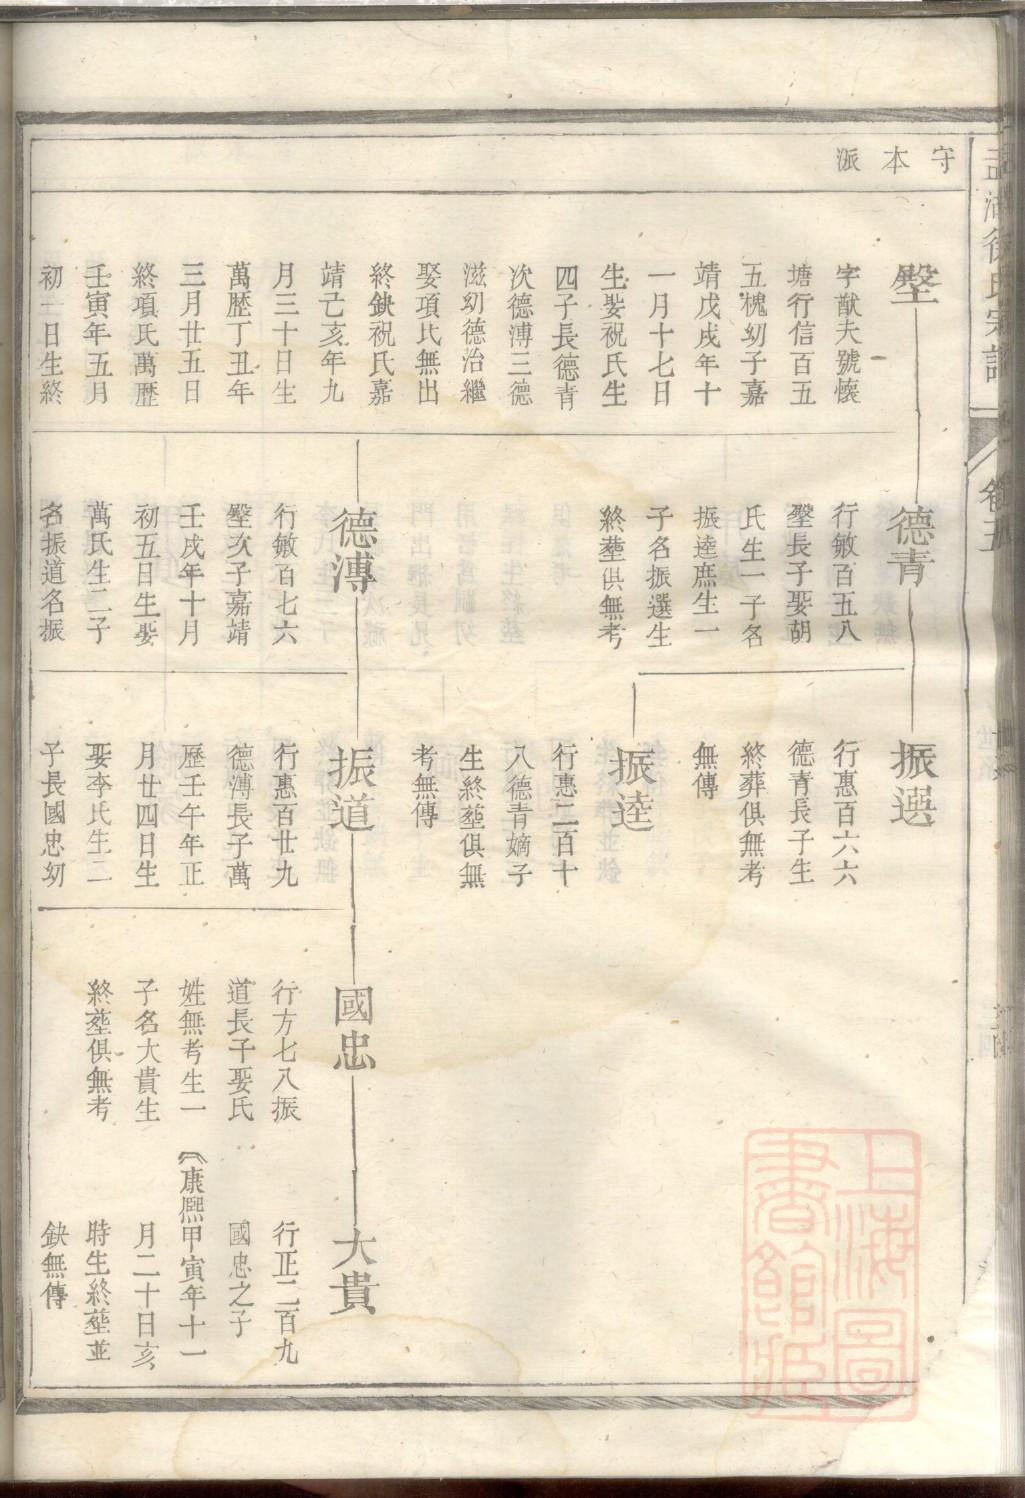 守本派
壂
字猷夫號懷
塘行信百五
五槐幼子嘉
靖戊戌年十
一月十七日
生娶祝氏生
四子長德青
次德溥三德
滋幼德治繼
娶項氏無出
終缺祝氏嘉
靖己亥年九
月三十日生
萬歷丁丑年
三月廿五日
終項氏萬歷
壬寅年五月
初一日生終
德青
行敏百五八
壂長子娶胡
氏生一子名
振逵庶生一
子名振選生
終塟俱無考
德溥
行敏百七六
壂次子嘉靖
壬戌年十月
初五日生娶
萬氏生二子
名振道名振
振選
行惠百六六
德青長子生
終葬俱無考
無傳
振逵
行惠二百十
八德青嫡子
生終塟俱無
考無傳
振道
行惠百廿九
德溥長子萬
歷壬午年正
月廿四日生
娶李氏生二
子長國忠幼
國忠
行方七八振
道長子娶氏
姓無考生一
子名大貴生
終塟俱無考
大貴
行正二百九
國忠之子
康熙甲寅年十一
月二十日亥
時生終塟並
缺無傳
徐氏宗譜
卷五
世系
上海圖
書館藏